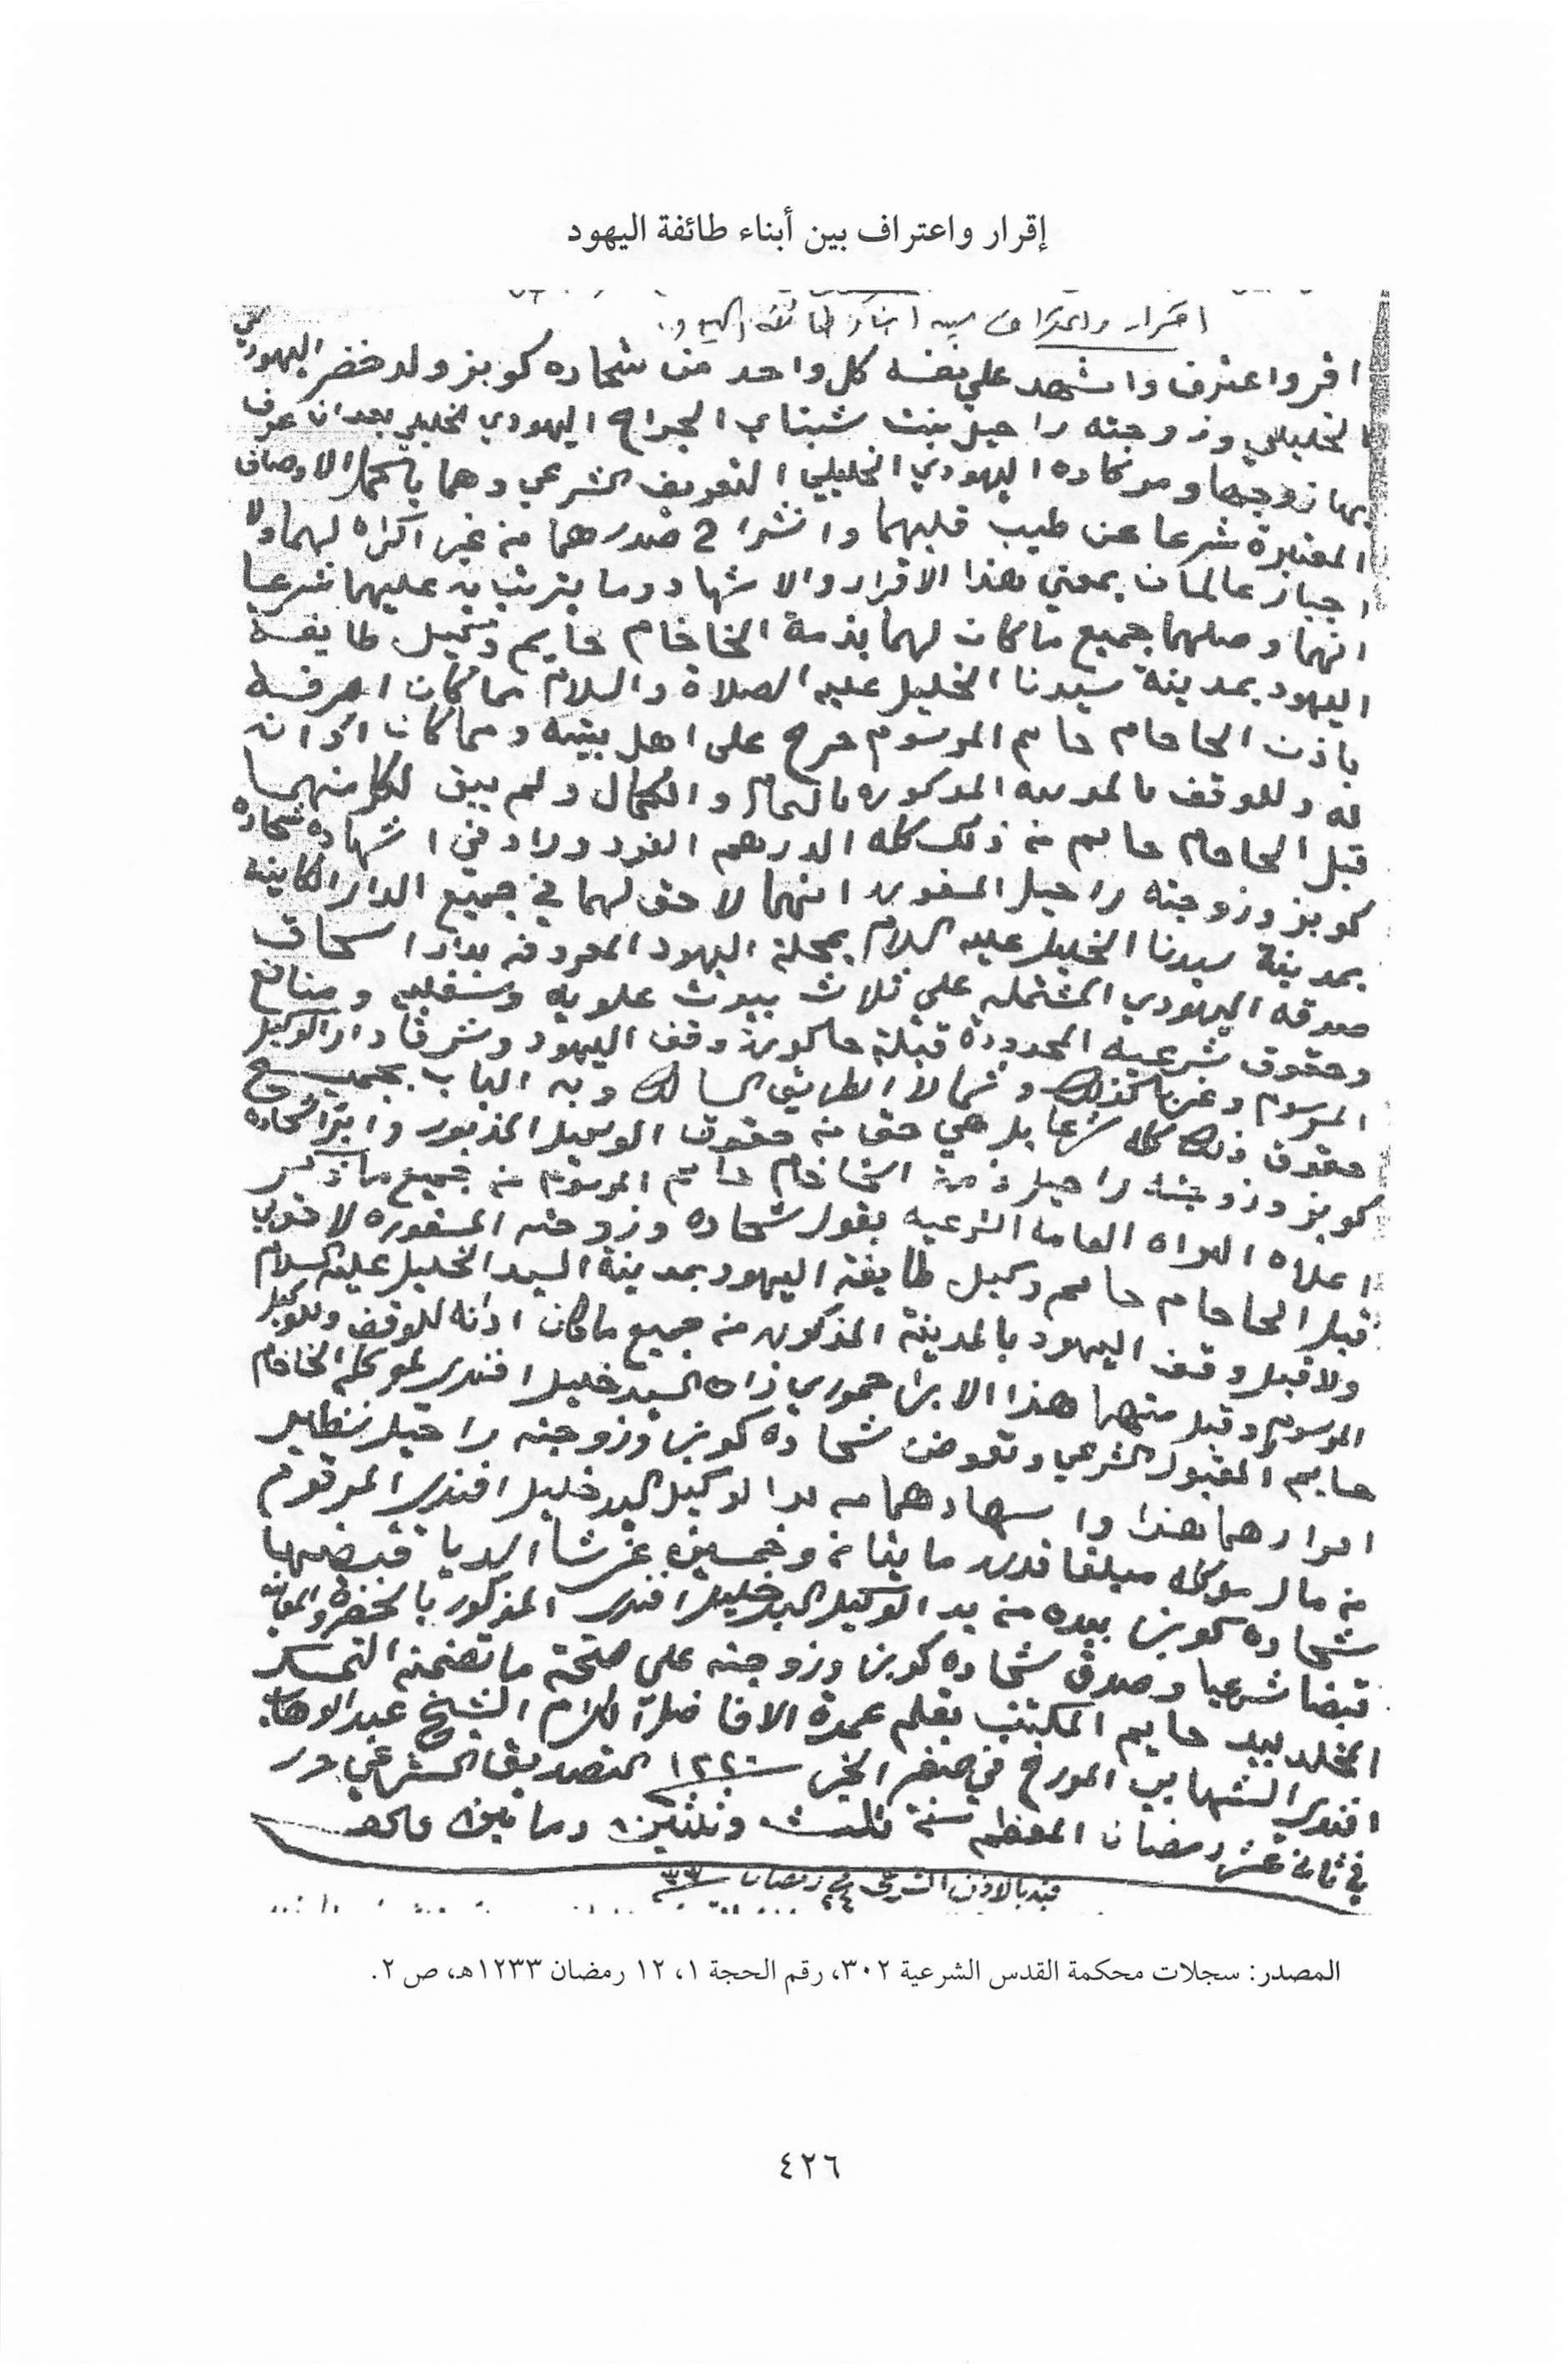 إقرار واعتراف بين أبناء طائفة اليهود
اقرار واعتراف بين ابناء طائفة اليهود
اقر واعترف واشهد على نفسه كل واحد من شحاده كوبز ولد خضر اليهودي
الخليلي وزوجته راحيل بنت شبتاي الجراح اليهودي الخليلي بعد ان عرف
بها زوجها ومو كاده اليهودي الخليلي التعريف الشرعي وهما باكمل الاوصاف
المعتبرة شرعا عن طيب قلبهما وانشراح صدرهما من غير اكراه لهما ولا
اجبار عالمان بمعنى هذا الاقرار والاشهاد وما يترتب به عليهما شرعيا
انهما وصلهما جميع ماكان لهما بذمة الخاخام حايم وكيل طايفة
اليهود بمدينة سيدنا الخليل عليه الصلاة والسلام مما كان اصرفه
باذن الحاخام حايم المرسوم خرج على اهل بيته ومما كان ادانه
له وللوقف بالمدينه المذكوره بالتمام والكمال ولم يبق لكل منهما
قبل الحاخام حايم من ذلك كله الدرهم الفرد وزاد في اشهاده شحاده
كوبز وزوجته راحيل المسفوره انهما لا حق لهما في جميع الدار الكاينة
بمدينة سيدنا الخليل عليه السلام بمحلة اليهود المعروفه بدار اسحاق
صدقه اليهودي المشتمله على ثلاث بيوت علويه وسفليه ومنافع
وحقوق شرعيه المحدودة قبلة حاكورة وقف اليهود وشرقا دار الوكيل
المرسوم وغربا كذلك وشمالا الطريق السالك وبه الباب بجميع
حقوق ذلك كله شرعا بل هي حق من حقوق الوكيل المذبور وابرا شحاده
كوبز وزوجته راحيل ذمة الخاخام حايم المرسوم من جميع ما ذكر
اعلاه البراه العامه الشرعيه بقول شحاده وزوجته المسفوره لا حق لي
قبل الحاخام حايم وكيل طايفة اليهود بمدينة السيد الخليل عليه السلام
ولا قبل وقف اليهود بالمدينة المذكوره من جميع ماكان ادانه للوقف وللوكيل
المرسوم وقبل منهما هذا الابرا حموري زاده السيد خليل افندي لموكله الخاخام
حايم القبول الشرعي وتعوض شحاده كوبز وزوجته راحيل بنظير
اقرارهما هذا واشهادهما من يد الوكيل السيد خليل افندي المرقوم
من مال موكله مبلغا قدره مايتان وخمسين غرشا اسديا قبضها
شحاده كوبز بيده من يد الوكيل السيد خليل افندي المذكور بالحضرة والمعاينه
قبضا شرعيا وصدق شحاده كوبز وزوجته على صحة ما تضمنه التمسك
المخلد بيد حايم المكتتب بقلم عمدة الافاضل الكرام الشيخ عبد الوهاب
افندي الشهابي المورخ في صفر الخير ١٢٢٠ التصديق الشرعي حرر
في ثاني عشر رمضان المعظم سنة ثلاث وثلثين ومايتين والف
قيد بالاذن الشرعي في ٢٤ رمضان ٣٣
المصدر: سجلات محكمة القدس الشرعية ٣٠٢، رقم الحجة ١، ١٢ رمضان ١٢٣٣هـ، ص ٢.
٤٢٦